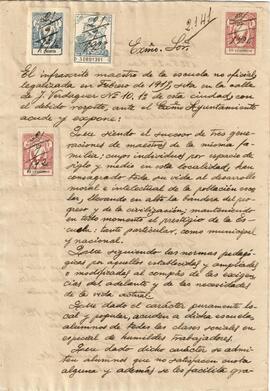 2141
Exmo. Sor.
El infrascrito maestro de la escuela no oficial
legalizada en Febrero de 1917, sita en la calle
de J. Verdaguer nº 10, 1º de esta ciudad, con
el debido respeto, ante el Excmo Ayuntamiento
acude y expone:
Que siendo el sucesor de tres gene-
raciones de maestros de la misma fa-
milia; cuyos individuos por espacio de
siglo y medio en esta localidad, han
consagrado toda su vida al desarrollo
moral e intelectual de la población esco-
lar, llevando en alto la bandera del pro-
greso y de la civilización; manteniendo
en todo momento el prestigio de la es-
cuela: tanto particular, como municipal
y nacional.
Que siguiendo las normas pedagógi-
cas en aquellas establecidas y ampliadas
o modificadas al compás de las exigen-
cias del adelanto y de las necesidades
de la vida actual.
Que dado el carácter puramente lo-
cal y popular, acuden a dicha escuela
alumnos de todas las clases sociales en
especial de humildes trabajadores.
Que dado dicho carácter se admi-
ten alumnos que no satisfacen cuota
alguna y además se les facilita gra-